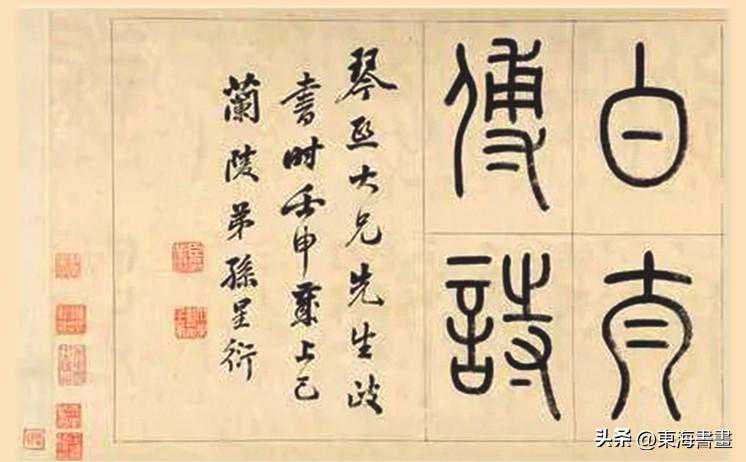 白太
傅詩
琴大兄先生政
書時壬申上巳
蘭陵弟孫星衍
头条 @東海書畫